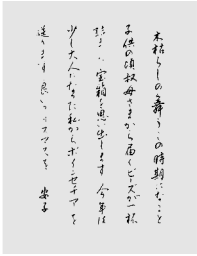 木枯らしの舞うこの時期になると
子供の頃叔母さまから届くビーズが一杯
詰まった宝箱を思い出します 今年は
少し大人になった私からポインセチアを
送ります 良いクリスマスを